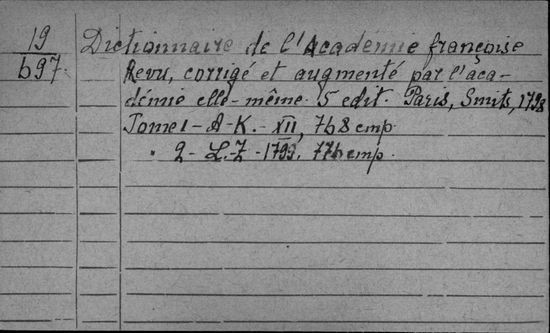 19
697.
Dictionnaire de l'Académie françoise
Revu, corrigé et augmenté par l'aca-
démie elle-même. 5 edit. Paris, Smits, 1798
Tome 1 - A-K. - XII, 768 cmp.
" 2 - L-Z - 1799. 776 cmp.